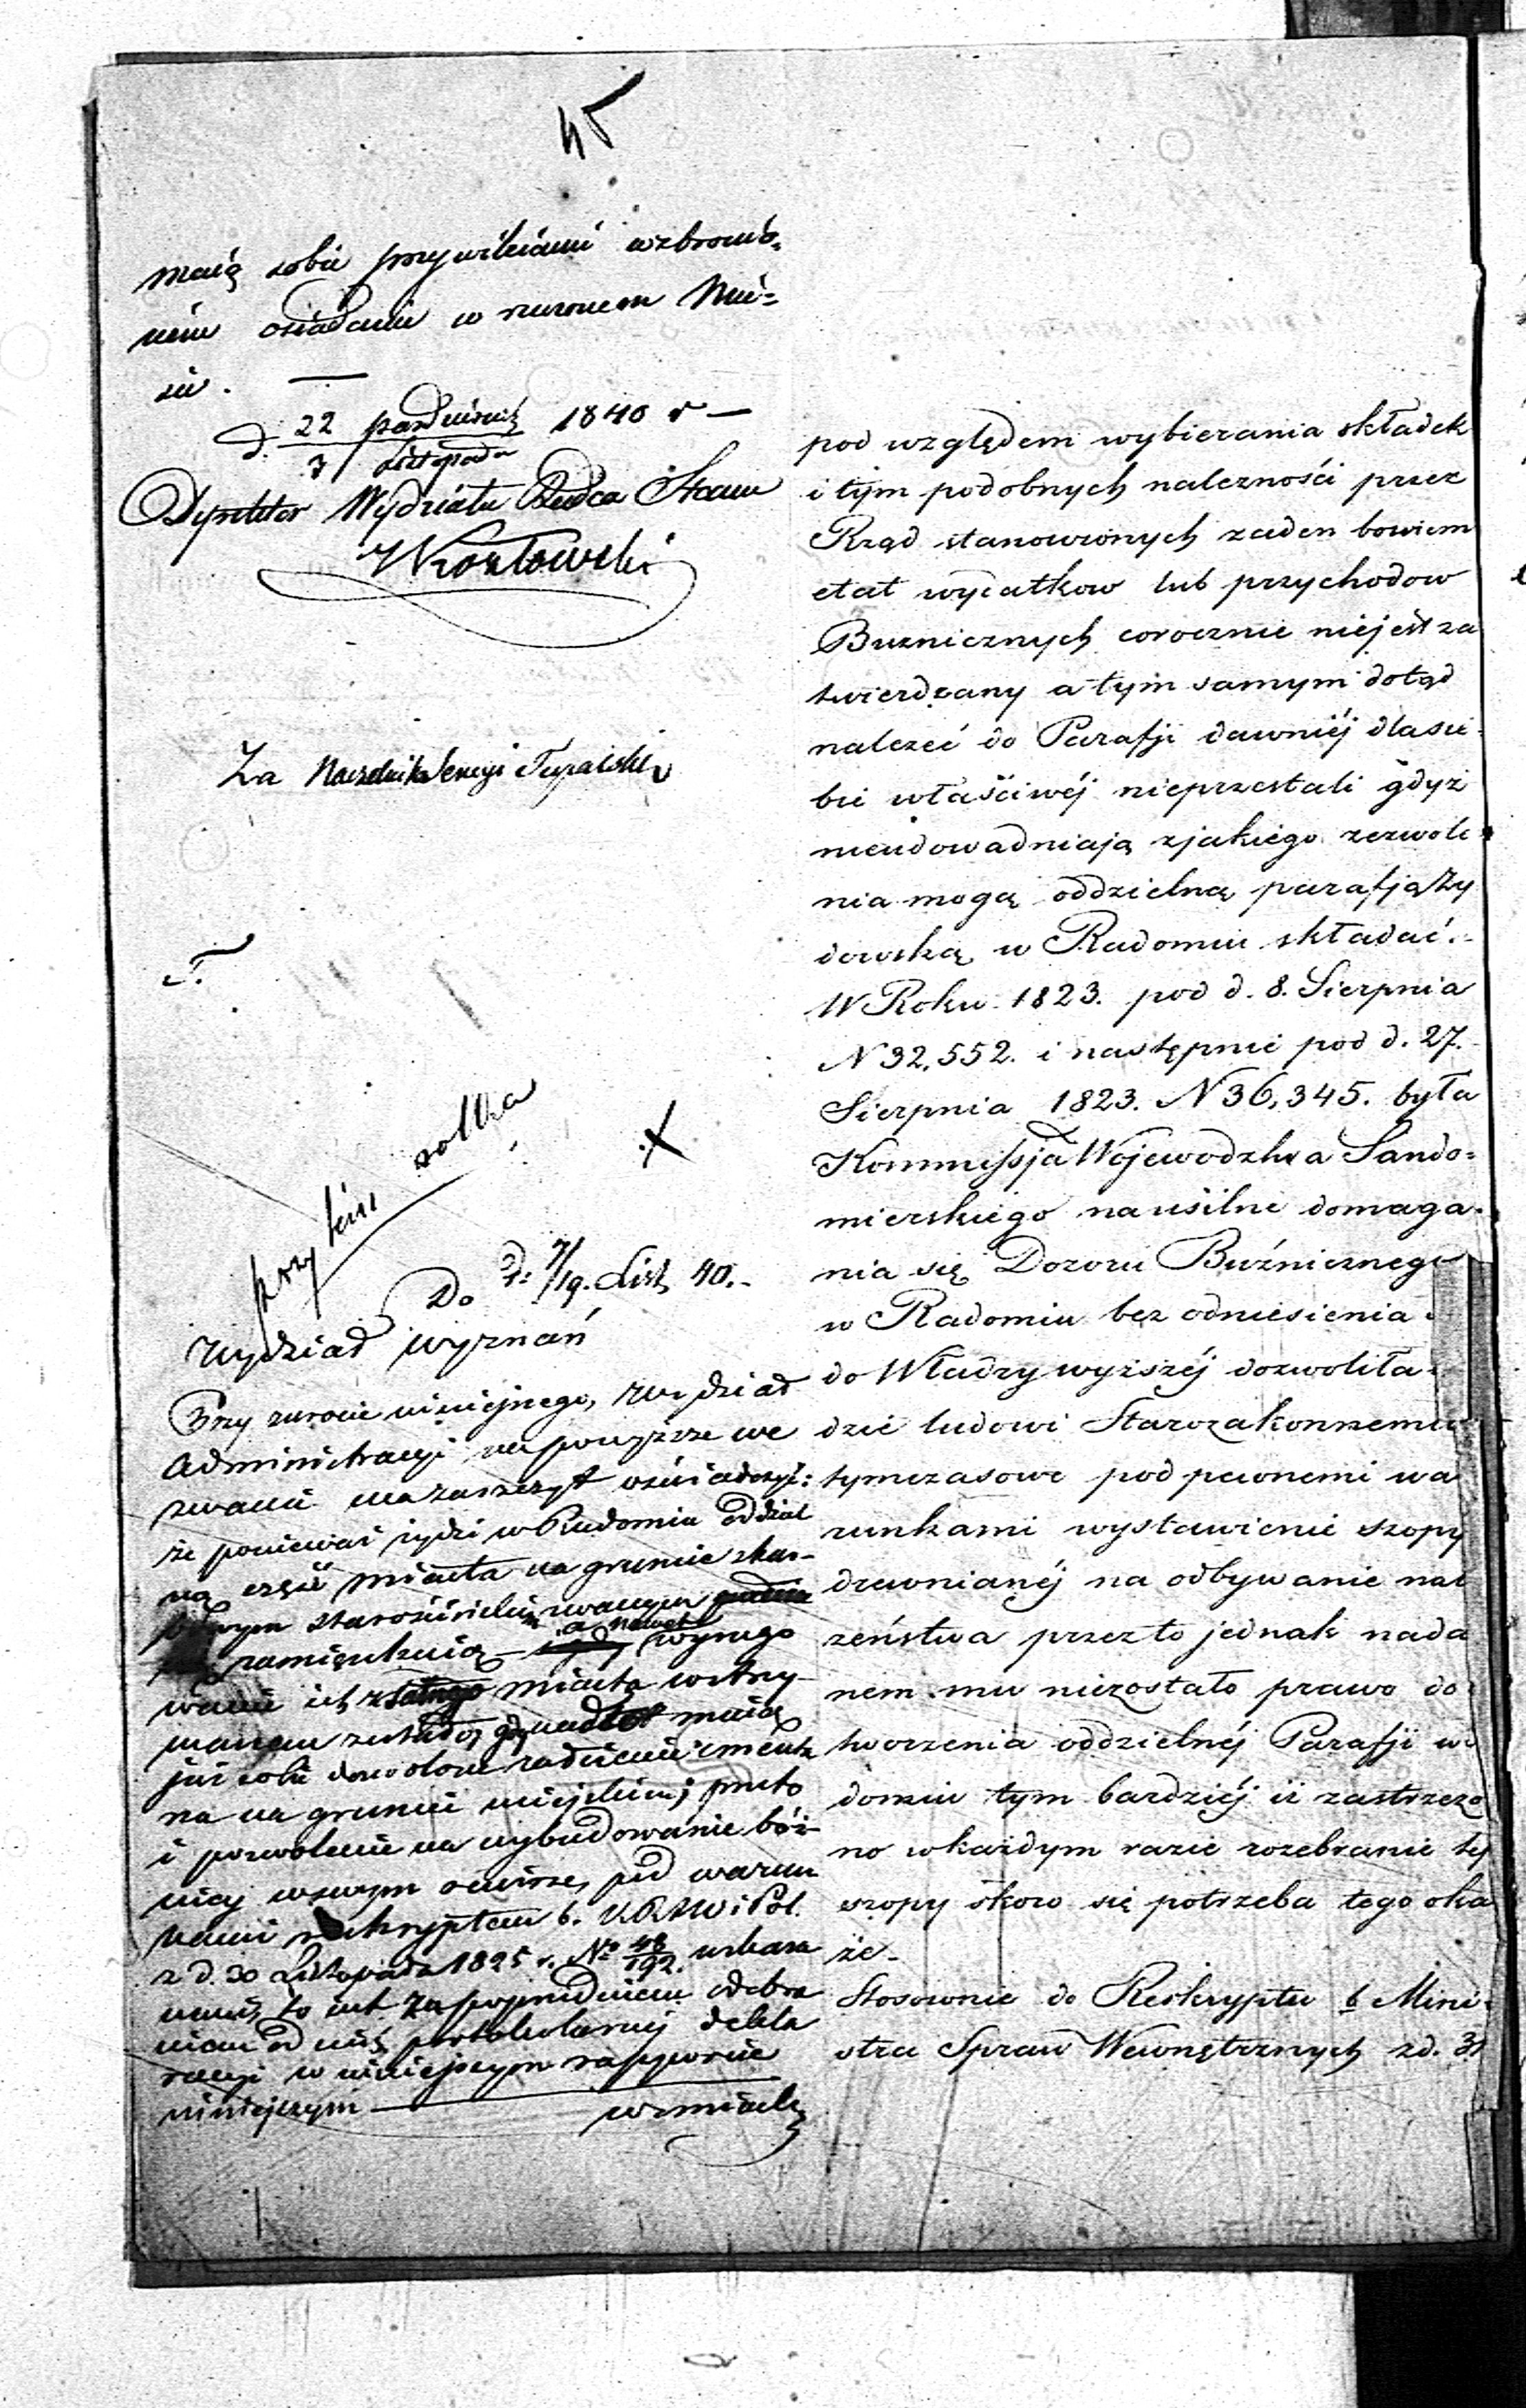 45
maią sobie przywileiami wzbronio=
nem osiadanie w rzeczonem Mie=
ście. —
d. 22 października / 3 Listopada 1840 r —
Dyrektor Wydziału Radca Stanu
Kozłowski
Za Naczelnika Sekcyi
przy tem notka
d: 7/19. List. 40.-
Do
Wydziału Wyznań
Przy zwrocie niniejszego, Wydział
Administracyi na powyższe we
zwanie ma zaszczyt oświadczyć:
że ponieważ żydzi w Radomiu oddziel
ną część miasta na gruncie skar-
bowym starościńskim zwanym
zamieszkują a nawet wyrugo
wanie ich z miasta wstrzy
manem zostało, gdy nadto maią
już sobie dozwolone założenie cmenta
rza na gruncie miejskim; przeto
i pozwolenie na wybudowanie bóż-
nicy w swym rewirze, pod warun
kami reskryptem b. K.R.S.W. i Pol.
z d. 30 Listopada 1825 r. No 48/192. wskaza
nemi, to iest za poprzedniem odebra
niem od nich protokularnej dekla
racyi w niniejszym rapporcie
niniejszym — wzmianka
pod względem wybierania składek
i tym podobnych nalezności przez
Rząd stanowionych zaden bowiem
etat wydatkow lub przychodow
Buznicznych corocznie niejest za
twierdzany a tym samym dotąd
nalezeć do Parafji dawniéj dla sie-
bie właściwéj nieprzestali gdyż
nieudowadniają zjakiego zezwole
nia mogą oddzielną parafją Zy
dowską w Radomiu składać.-
W Roku 1823. pod d. 8. Sierpnia
N 32,552. i następnie pod d. 27.
Sierpnia 1823. N 36,345. była
Kommissja Wojewodztwa Sando=
mierskiego na usilne domaga-
nia się Dozoru Buźnicznego
w Radomiu bez odniesienia
do Władzy wyższéj dozwoliła
dzie ludowi Starozakonnemu
tymczasowe pod pewnemi wa
runkami wystawienie szopy
drewnianéj na odbywanie nab
zeństwa przez to jednak nada
nem mu niezostało prawo do
tworzenia oddzielnéj Parafji w
domiu tym bardziéj iż zastrzeżo
no wkażdym razie rozebranie tej
szopy skoro się potrzeba tego oka
że-
Stosownie do Reskryptu b Mini-
stra Spraw Wewnętrznych z d. 31